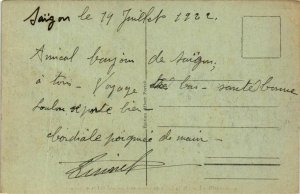 Saïgon le 19 Juillet 1922.
Amical bonjour de Saïgon,
à tous - Voyage très bon - santé bonne
Loulou se porte bien -
cordiale poignée de main -